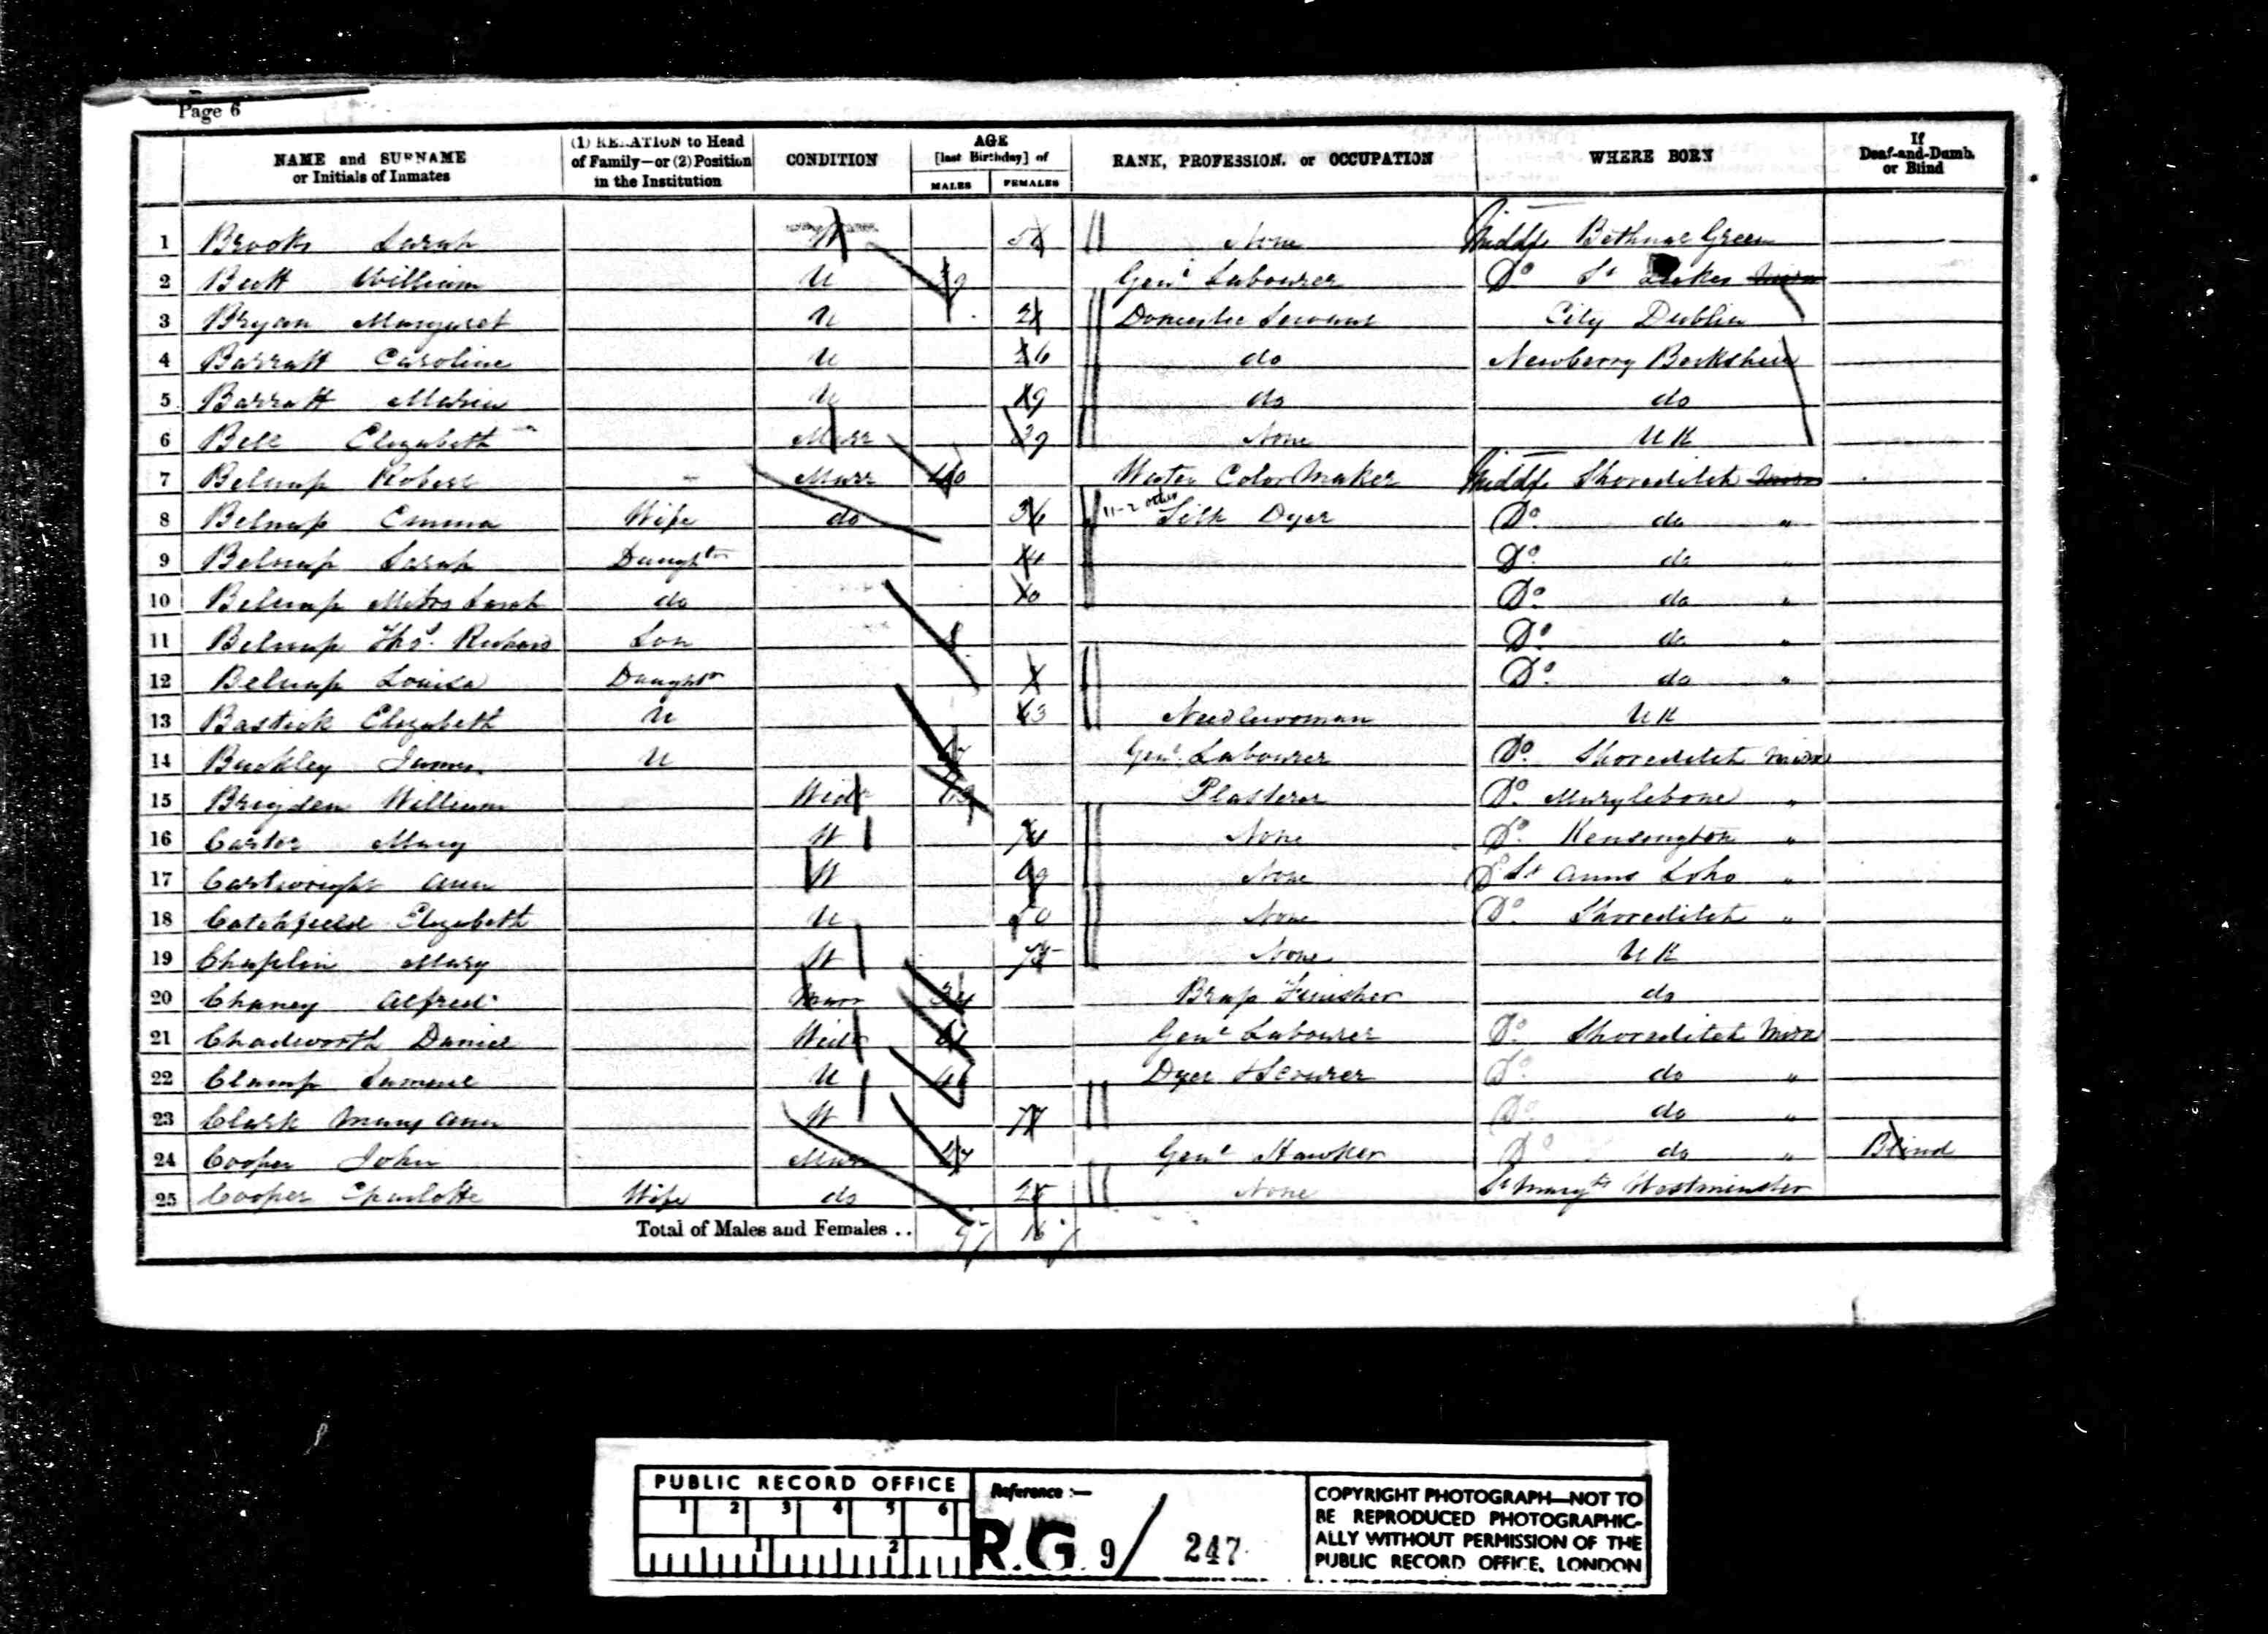 Page 6
NAME and SURNAME or Initials of Inmates
(1) RELATION to Head of Family—or (2) Position in the Institution
CONDITION
AGE [last Birthday] of
MALES FEMALES
RANK, PROFESSION, or OCCUPATION
WHERE BORN
If Deaf-and-Dumb, or Blind
1 Brooks Sarah W None Middx Bethnal Green
2 William U Genl Labourer Do St Lukes
3 Bryan Margaret U Domestic Servant City Dublin
4 Barratt Caroline U 26 do Newberry Berkshire
5 Barratt Maria U 19 do do
6 Bell Elizabeth Marr 39 None UK
7 Belnap Robert Marr 40 Water Color Maker Middx Shoreditch
8 Belnap Emma Wife do 36 Silk Dyer Do do "
9 Belnap Sarah Daughtr 14 Do do "
10 Belnap Sarah do 10 Do do "
11 Belnap Thos. Richard Son 8 Do do "
12 Belnap Louisa Daughtr Do do "
13 Bastick Elizabeth U 63 Needlewoman UK
14 Buckley James U Genl Labourer Do Shoreditch Middx
15 Brigden William Widr Plasterer Do Marylebone "
16 Carter Mary W 74 None Do Kensington "
17 Cartwright Ann W 69 None Do St Anns Soho "
18 Catchfield Elizabeth U 50 None Do Shoreditch "
19 Chaplin Mary W 75 None UK
20 Chaney Alfred Marr 34 Brass Finisher do
21 Chadworth Daniel Widr Genl Labourer Do Shoreditch Middx
22 Clamp Samuel U 46 Dyer & Scourer Do do "
23 Clark Mary Ann W 77 Do do "
24 Cooper John Marr 27 Genl Hawker Do do " Blind
25 Cooper Charlotte Wife do 25 None St Margts Westminster
Total of Males and Females .. 9 16
PUBLIC RECORD OFFICE
1 2 3 4 5 6
1 2
Reference :—
R.G. 9 / 247
COPYRIGHT PHOTOGRAPH—NOT TO
BE REPRODUCED PHOTOGRAPHIC-
ALLY WITHOUT PERMISSION OF THE
PUBLIC RECORD OFFICE, LONDON